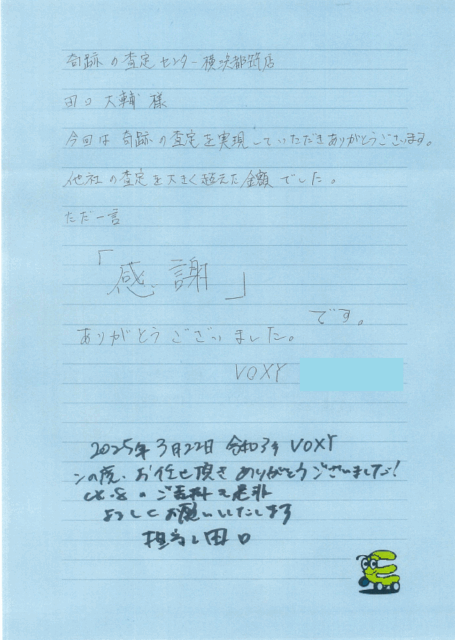 奇跡の査定センター横浜都筑店
田口大輔様
今回は奇跡の査定を実現していただきありがとうございます。
他社の査定を大きく超えた金額でした。
ただ一言
「感謝」
です。
ありがとうございました。
VOXY
2025年3月22日 令和3年 VOXY
この度、お任せ頂きありがとうございました!
CX-8の
よろしくお願いいたします
担当 田口